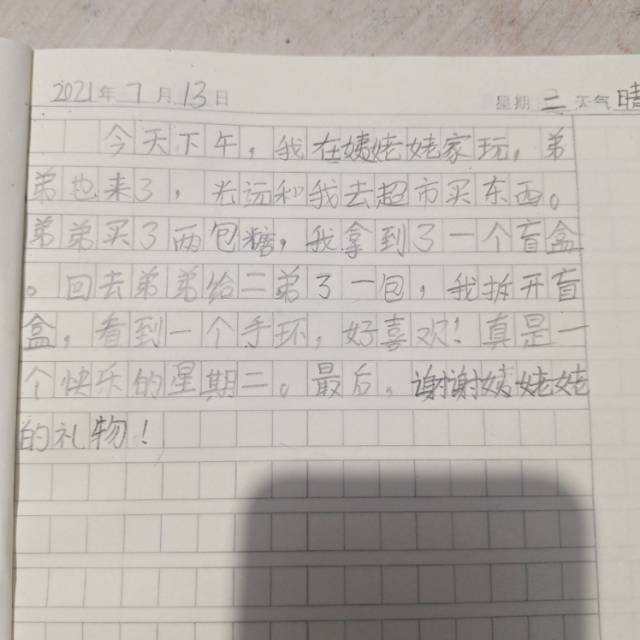 2021年7月13日 星期二 天气 晴
今天下午，我在姨姥姥家玩，弟
弟也来了，光远和我去超市买东西。
弟弟买了两包糖，我拿到了一个盲盒
。回去弟弟给二弟了一包，我拆开盲
盒，看到一个手环，好喜欢！真是一
个快乐的星期二。最后，谢谢姨姥姥
的礼物！